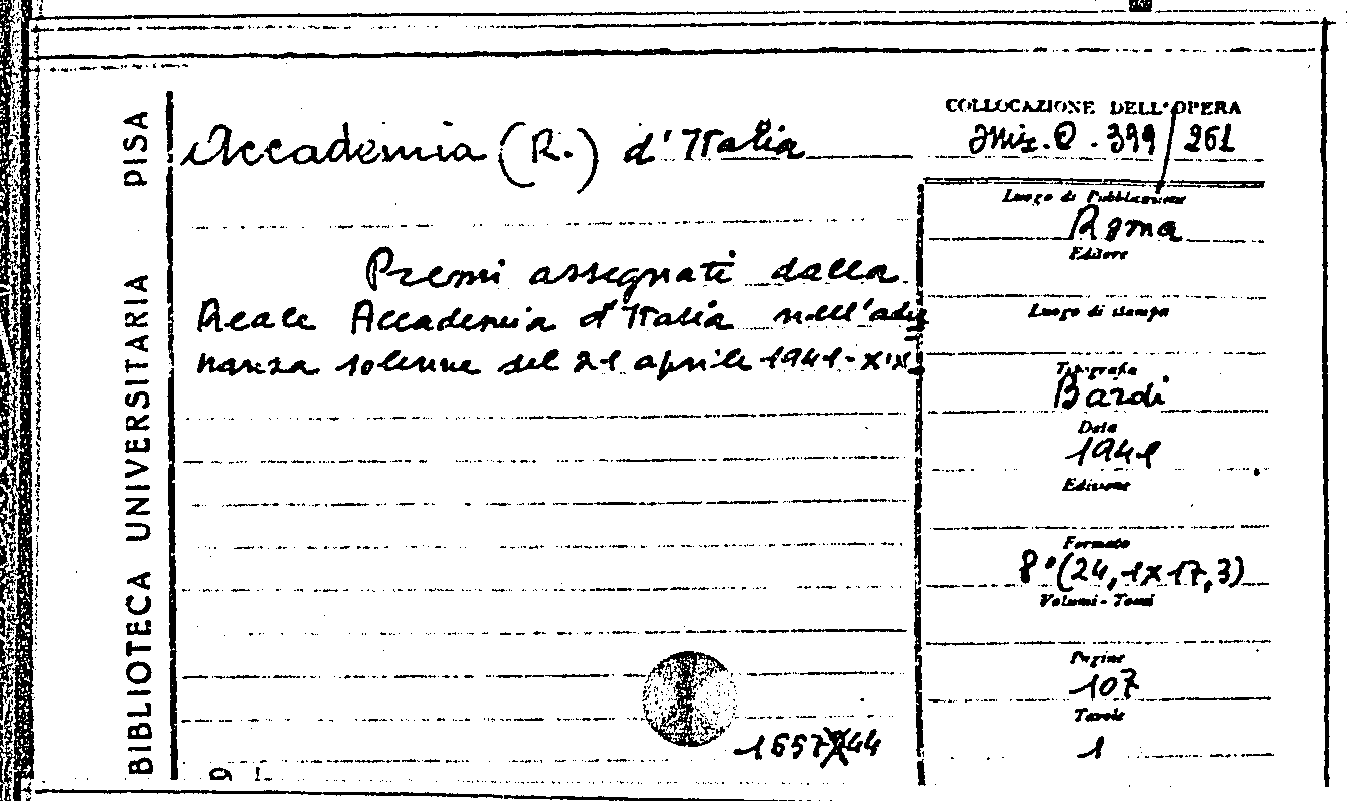 BIBLIOTECA UNIVERSITARIA PISA
Accademia (R.) d'Italia
Premi assegnati dalla
Reale Accademia d'Italia nell'adu
nanza solenne del 21 aprile 1941-XIX
COLLOCAZIONE DELL'OPERA
Misc. O. 399 / 261
Luogo di Pubblicazione
Roma
Editore
Luogo di stampa
Tipografia
Bardi
Data
1941
Edizione
Formato
8°(24,1x17,3)
Volumi - Tomi
Pagine
107
Tavole
1